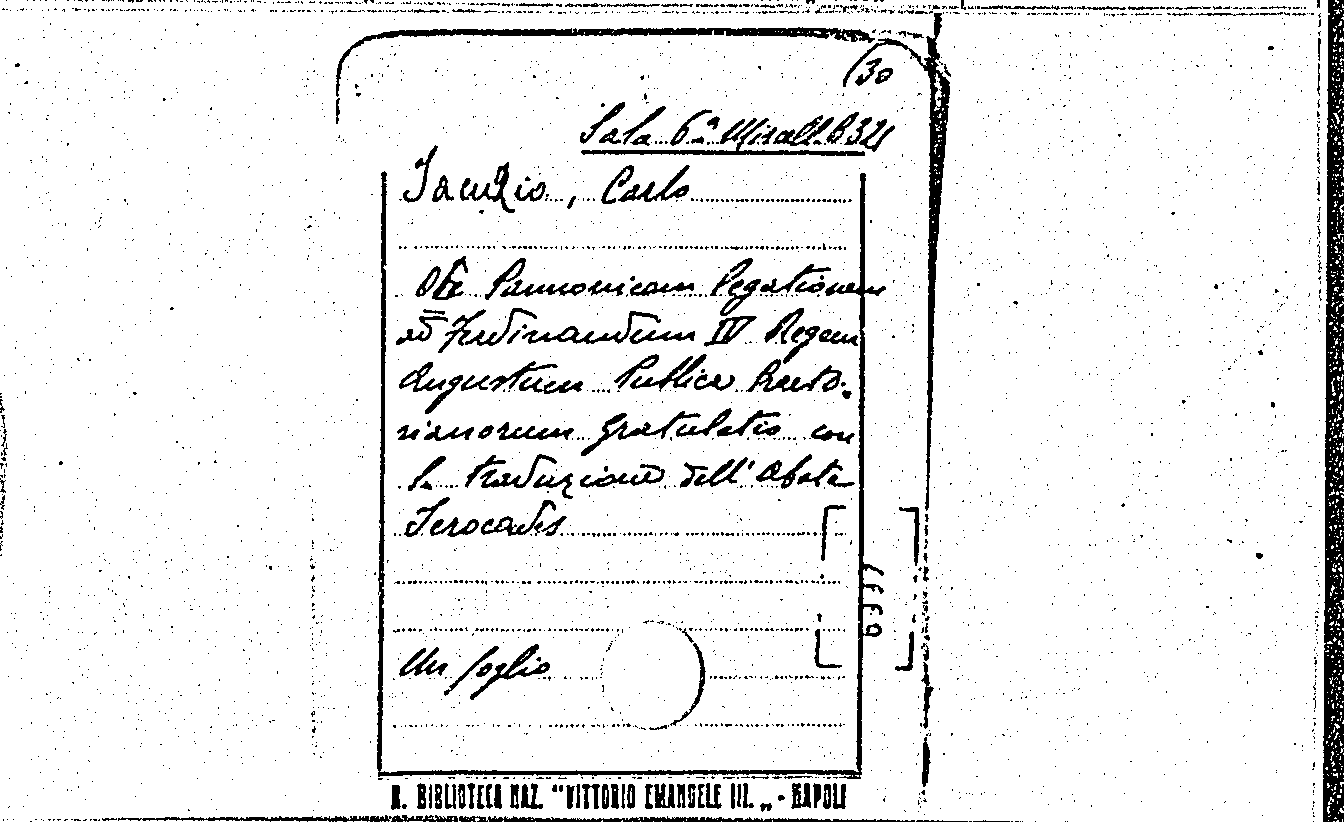 (30
Sala 6ª Miscell. B 321
Iacuzio, Carlo
Ob Pannonicam Legationem
ad Ferdinandum IV Regem
Augustum Publica Praeto-
rianorum Gratulatio con
la traduzione dell'Abate
Jerocades
Un foglio
R. BIBLIOTECA NAZ. "VITTORIO EMANUELE III. „ - NAPOLI